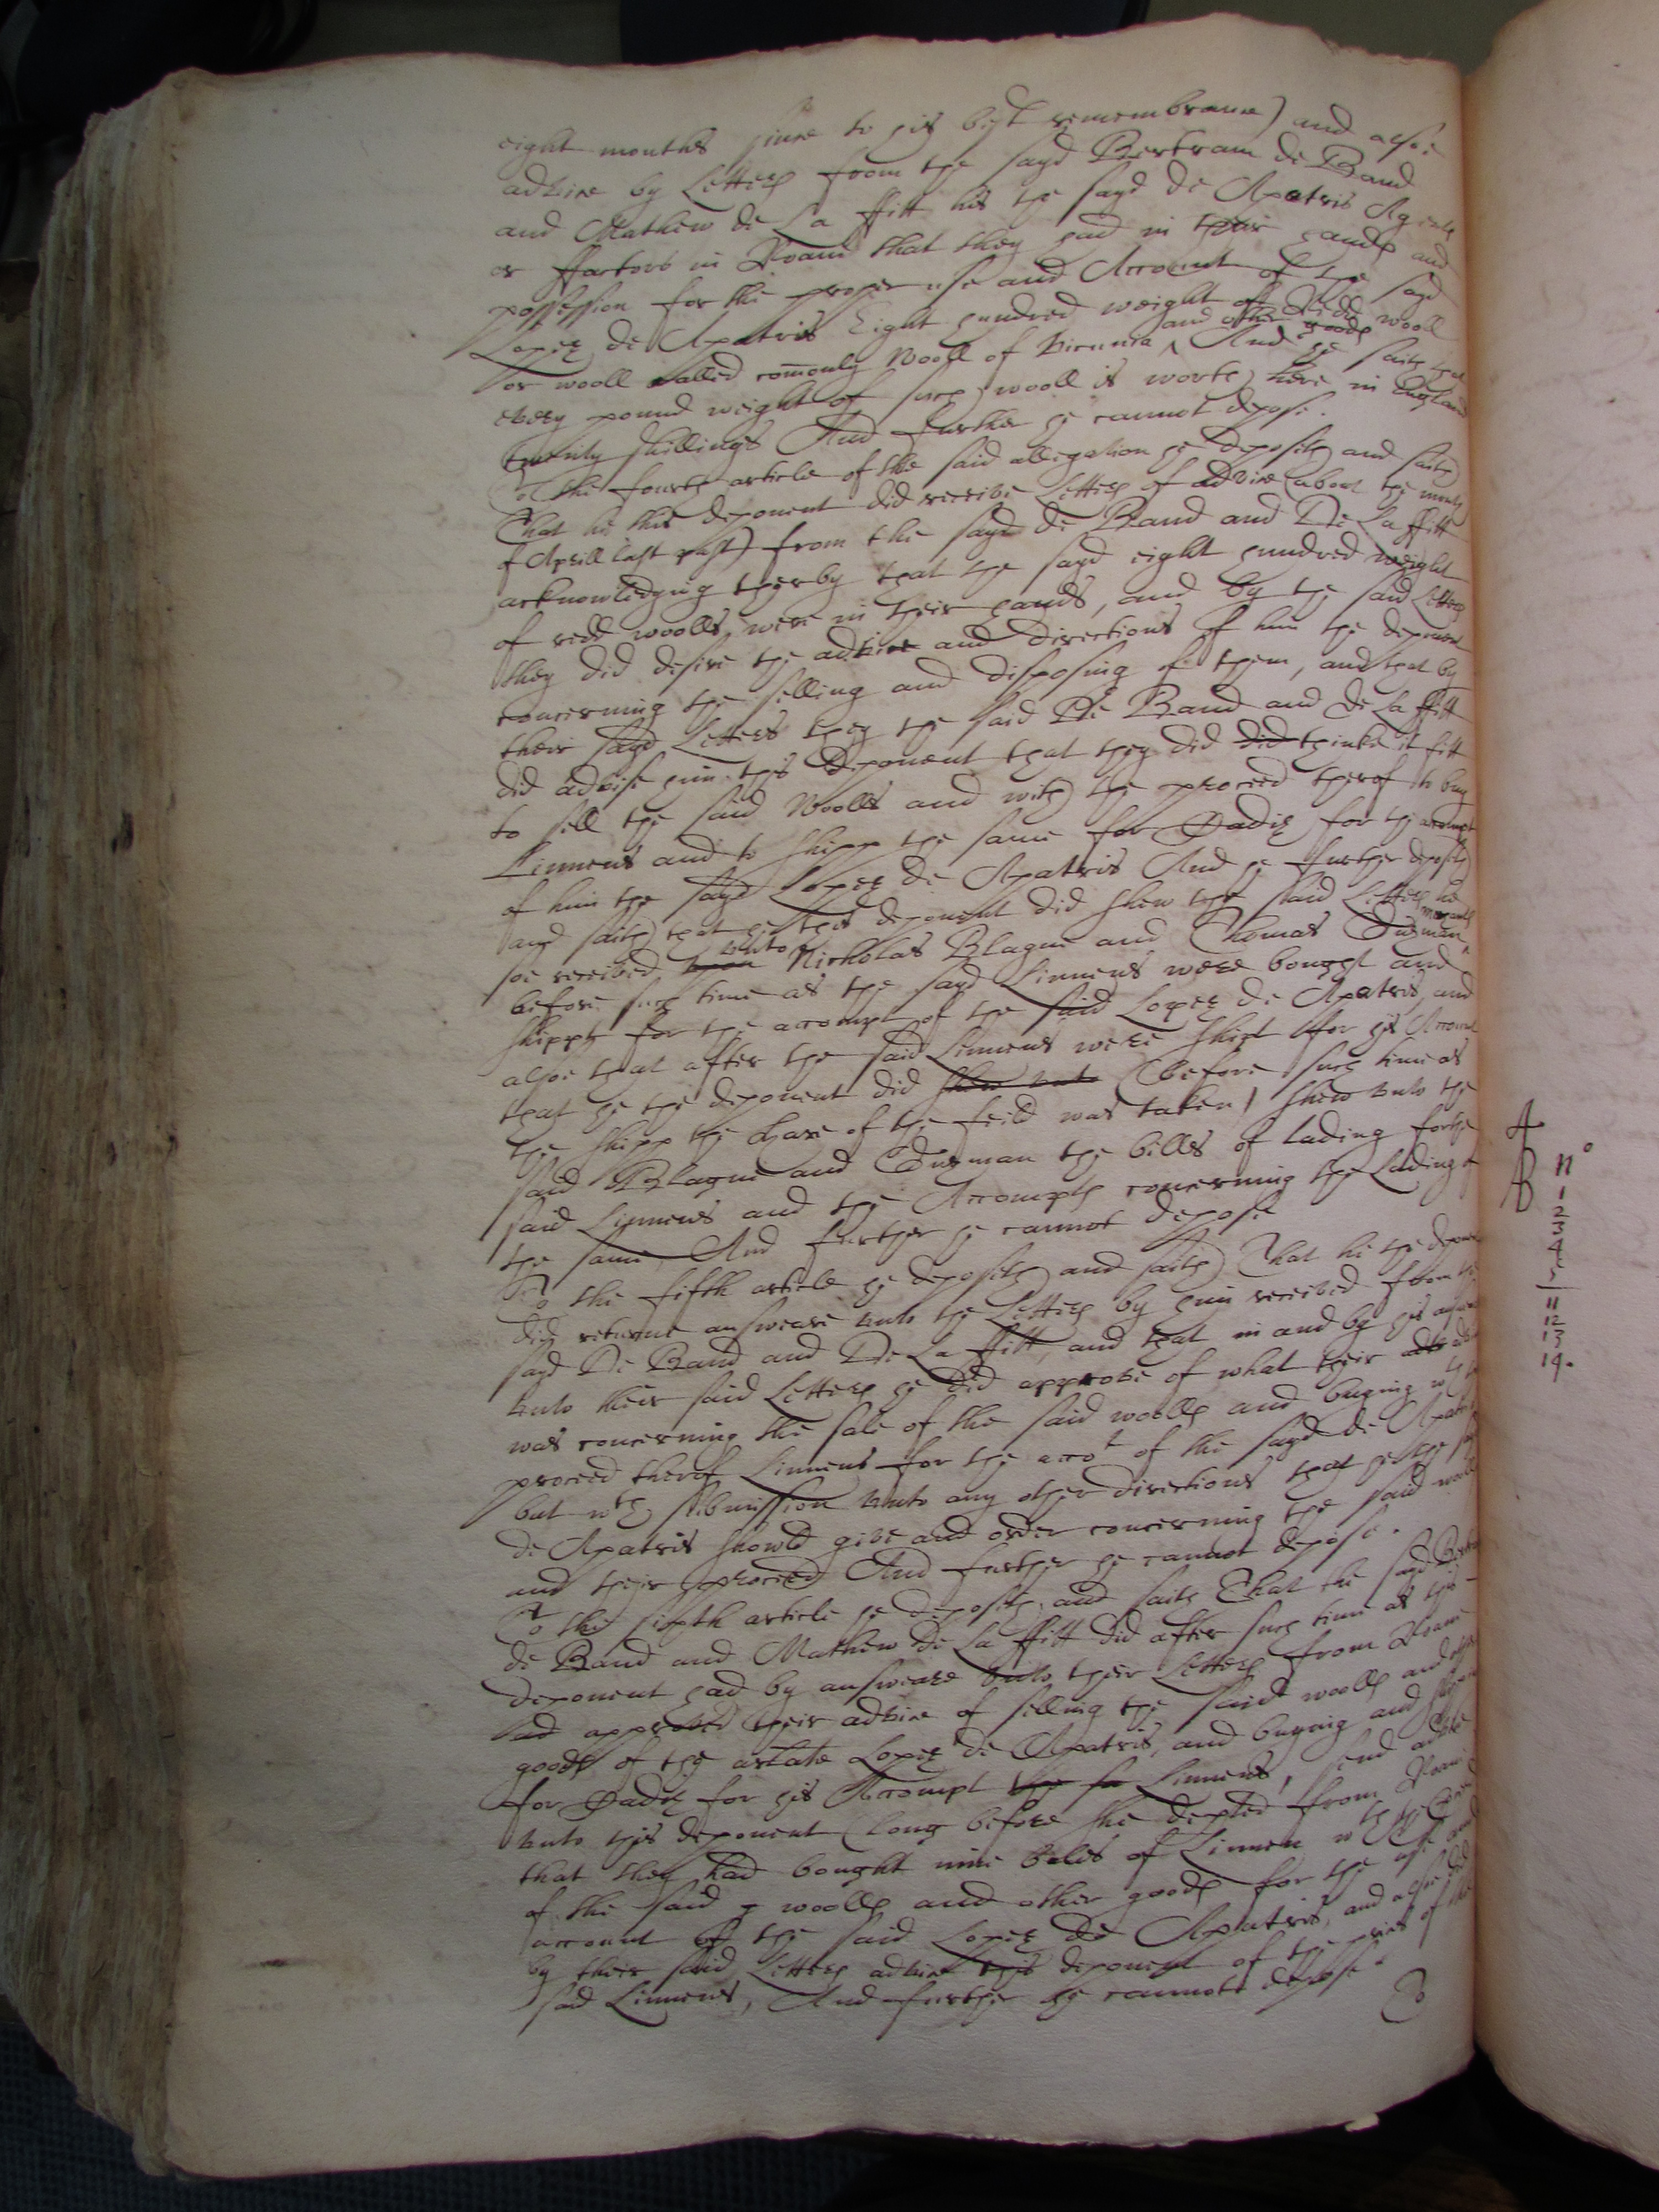 eight months since to his best remembrance) and alsoe
advice by Letters from the sayd Bertram de Band
and Mathew de La ffitt his the sayd de Apatris Agents
or ffactors in Roane that they had in their hands and
possession for the proper use and Account of the sayd
Lopez de Apatris Eight hundred weight of Redd wooll
or wooll called com̄only Wooll of Vicunia and other goods And he saith that
every pound weight of such wooll is worth here in England
twenty shillings And further he cannot depose.
To the fourth article of the said allegation he deposeth and saith
That he this deponent did receive Letters of advice (about the month
of Aprill last past) from the sayd de Band and De La ffitt
acknowledging therby that the sayd eight hundred weight
of redd woolls were in their hands, and by the said Letters
they did desire the advice and directions of him the deponent
concerning the selling and disposing of them, and that by
their sayd Letters they the said De Band and de La ffitt
did advise him this deponent that they did did thinke it fitt
to sell the said Woolls and with the proceed therof to buy
Linnens and to shipp the same for Cadiz for the accompt
of him the sayd Lopez de Apatris And he further deposeth
and saith that he this deponent did shew the said Letters he
soe received, upon unto Nicholas Blague and Thomas Duzman
before such time as the sayd Linnens were bought and
shippt for the accompt of the said Lopez de Apatris, and
alsoe that after the said Linnens were shipt for his Account
that he the deponent did shew unto (before such time as
the shipp the Chase of the feild was taken) shew unto the
said Blague and Duzman the bills of lading for the
said Linnens and the Accompts concerning the Lading of
the same And further he cannot depose
To the fifth article he deposeth and saith That he the deponent
did returne answeare unto the Letters by him received from the
sayd De Band and De La ffitt, and that in and by his answeare
unto their said Letters he did approve of what their
was concerning the sale of the said woolls and buying wth the
proceed therof Linnens for the accot of the sayd de Apatris
but wth submission unto any other directions that he the sayd
de Apatris should give and order concerning the said woolls
and their proceed And further he cannot depose.
To the sixth article he deposeth and saith That the sayd Bertram
de Band and Mathew De La ffitt did after such time as the
deponent had by answeare unto their Letters from Roane
had approved their advice of selling the said woolls and other
goods of the arlate Lopez de Apatris, and buying and shipping
for Cadiz for his Accompt the sa Linnens, send advice
unto this deponent (long before she depted from Roane
that they had bought nine bales of Linnen wth the proceed
of the said woolls and other goods for the use and
account of the said Lopez de Apatris, and alsoe did
by their said Letters advise this deponent of the prices of the
said Linnens, And further he cannot depose.
To
A
B
no
1
2
3
4
5
11
12
13
14.